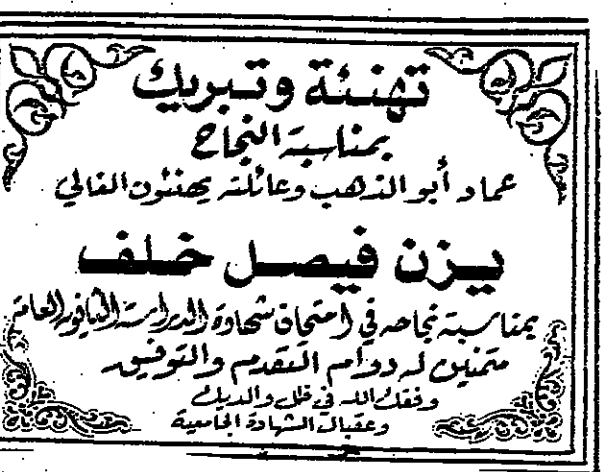 تهنئة وتبريك
بمناسبة النجاح
عماد أبو الذهب وعائلته يهنئون الغالي
يزن فيصل خلف
بمناسبة نجاحه في امتحان شهادة الدراسة الثانوية العامة
متمنين له دوام التقدم والتوفيق
وفقك الله في ظل والديك
وعقبال الشهادة الجامعية